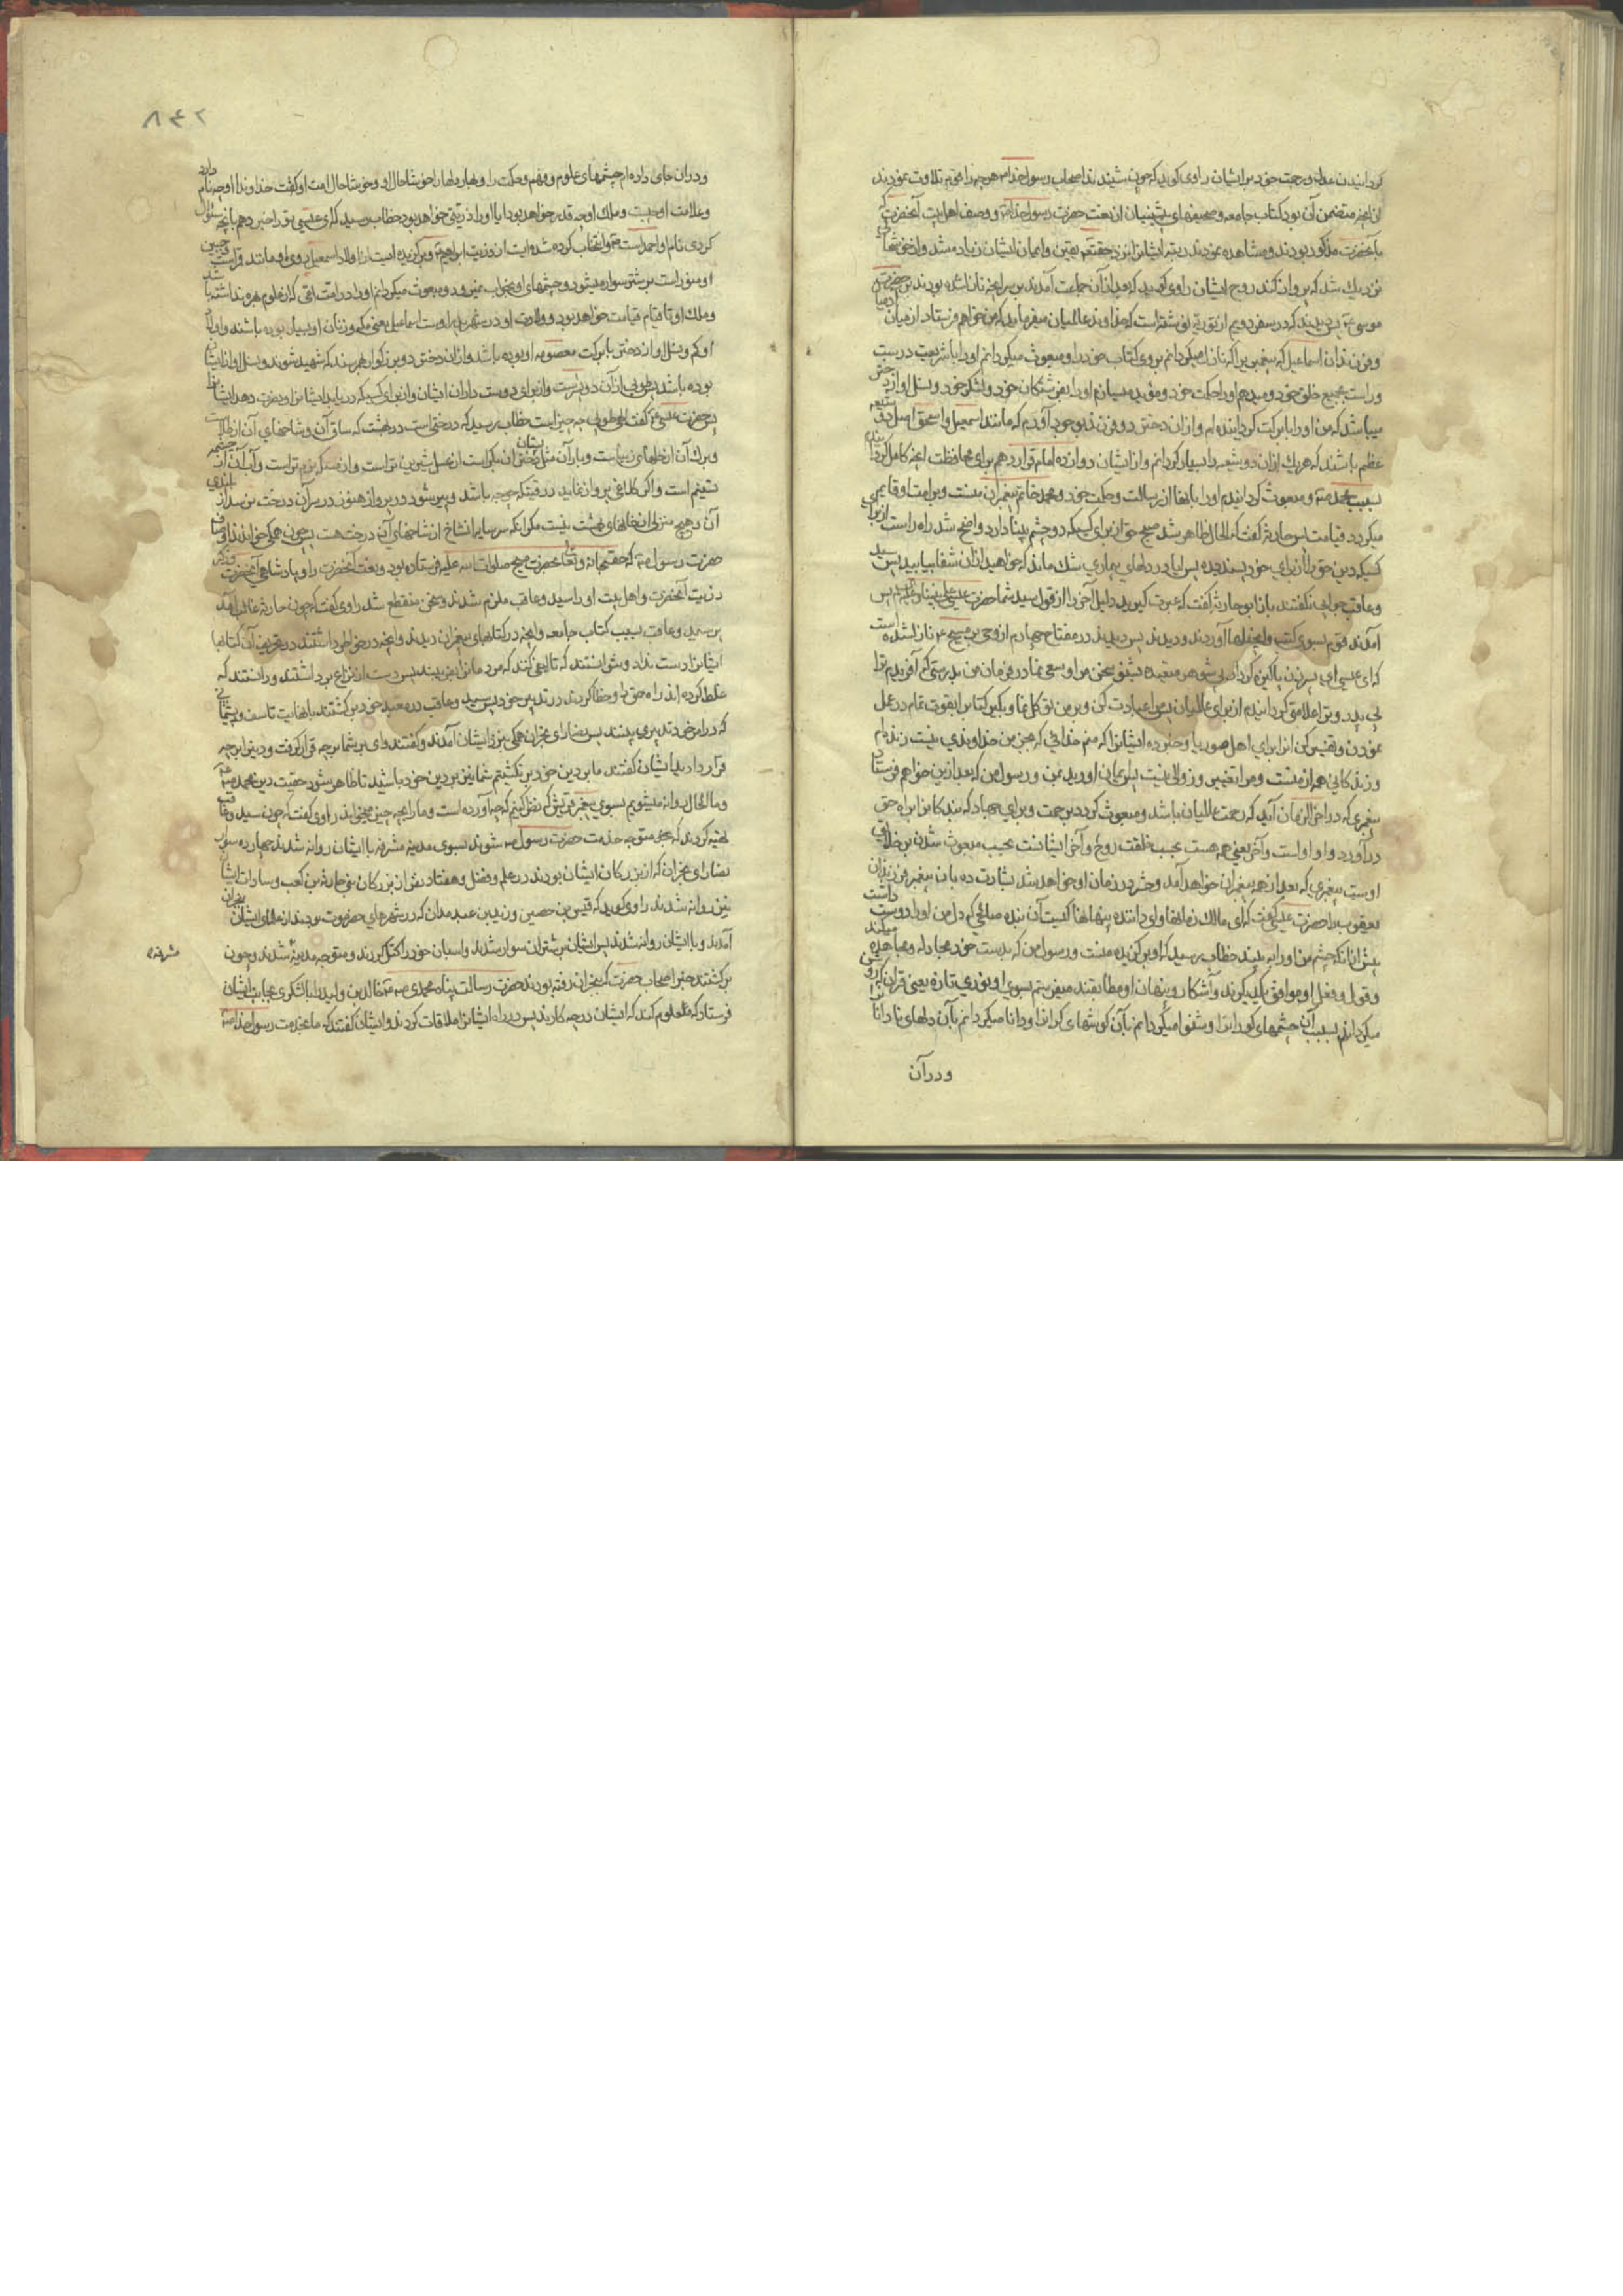 گردانیدن عدل و رحمت خود بر ایشان راوی گوید که چون شنیدند اصحاب رسول خدا هر چه را خواندند تلاوت نمودند
از آنچه متضمن آن بود کتاب جامعه و صحیفهای پیشینیان از نعت حضرت رسول خدا و وصف اهل بیت آنحضرت که
با آنحضرت مذکور بودند و مشاهده نمودند رتبه ایشانرا نزد حقتعالی یقین و ایمان ایشان زیاده شد و از خوشحالی
نزدیک شد که پرواز کند روح ایشان راوی گوید که بعد از آن جماعت آمدند بر سر آنچه نازل شده بود بر حضرت
موسی پس دیدند که در سفر دویم از توریة نوشته است که خداوند عالمیان میفرماید که من خواهم فرستاد از میان امیان
و فرزندان اسماعیل که پیغمبری را که نازل میگردانم بر وی کتاب خود را و مبعوث میگردانم او را با شریعت درست
و راست بجمیع خلق خود و میدهم او را حکمت خود و مؤید میسازم او را بفرشتگان خود و لشکر خود و نسل او از دختری
میباشد که من او را با برکت گردانیده ام و از آن دختر دو فرزند بوجود آورم که مانند اسمعیل و اسحق اصل دو شعبه
عظیم باشند که هر یک از آن دو شعبه را بسیار گردانم و از ایشان دوازده امام قرار دهم برای محافظت آنچه کامل گردانیدم
بسبب محمد و مبعوث گردانیدم او را بآنها از رسالت و حکمت خود و محمد خاتم پیغمبران منست و بر امت او قایم
میگردد قیامت پس حارثه گفت که الحال ظاهر شد صبح حق از برای کسیکه دو چشم بینا دارد و واضح شد راه راست از برای
کسیکه دین حق را از برای خود پسندیده پس آیا در دلهای بیماری شک مانده که خواهید از آن شفا بیابید پس سید
و عاقب جوابی نگفتند باز ابو حارثه گفت که عبرت گیرید دلیل آخر را از قول سید شما حضرت عیسی علی نبینا و علیه السلام پس
آمدند قوم بسوی کتب و انجیلها آوردند و دیدند پس دیدند در مفتاح چهارم از وحی بر مسیح نازل شده است
که ای عیسی ای پسر زن پاکیزه کردار بی شوهر متعبده بشنو سخن من او سعی نما در فرمان من بدرستی که آفریدم ترا
بی پدر و ترا علامتی گردانیدم از برای عالمیان پس مرا عبادت کن و بر من توکل نما و بگیر کتاب را بقوت تمام در عمل
نمودن و تفسیر کن آنرا برای اهل سوریا و خبر ده ایشانرا که منم خدائی که بغیر من خداوندی نیست زنده ام
و زندگانی همه از منست و مرا تغییر و زوالی نیست پس ایمان آورید بمن و رسول من که بعد از این خواهم فرستاد
پیغمبری که در آخر الزمان آید که رحمت عالمیان باشد و مبعوث گردد برحمت و برای جهاد که بندگانرا براه حق
درآورد و او اولست و آخر یعنی همه هست بحسب خلقت روح و آخر ایشانست بحسب مبعوث شدن بر خلایق
اوست پیغمبری که بعد از همه پیغمبران خواهد آمد و حشر در زمان او خواهد شد بشارت ده بآن پیغمبر فرزندان
یعقوب را حضرت عیسی گفت که ای مالک زمانها و ای داننده پنهانها کیست آن بنده صالحی که دل من او را دوست داشت
پیش از آنکه چشم من او را به بیند خطاب رسید که او برگزیده منست و رسول من که بدست خود مجادله و مجاهده میکند
و قول و فعل او موافق یکدیگرند و آشکار و پنهان او مطابقند میفرستم بسوی او نوری تازه یعنی قرآن
میگردانم بسبب آن چشمهای کور را بینا و شنوا میگردانم بآن گوشهای کر را و دانا میگردانم بآن دلهای نادان را
و در آن
۸۴۲
و در آن جای داده ام چشمهای علوم و فهم و حکمت را و بهار دلها را خوشا حال او و خوشا حال امت او گفت خداوندا او چه نام دارد
و علامت او چیست و ملک او چه قدر خواهد بود آیا او را ذریتی خواهد بود خطاب رسید که ای عیسی ترا خبر دهم بآنچه سئوال
کردی نام او احمد است و انتخاب کرده شده است از ذریت ابراهیم و برگزیده است از اولاد اسمعیل روی او مانند قمر است جبین
او منور است بر شتر سوار میشود و چشمهای او بخواب میرود و مبعوث میگردانم او را در امت امی که از علوم بهره نداشته باشد
و ملک او تا قیام قیامت خواهد بود و ولادت او در شهر پدر اوست اسماعیل یعنی مکه و زنان او بسیار بوده باشند و اولاد
او کم و نسل او از دختر با برکت معصومه او بوده باشد و از آن دختر دو بزرگوار بهم رسند که شهید شوند و نسل او از ایشان
بوده باشد پس طوبی از آن دو پسر است و از برای دوست داران ایشان و از برای کسیکه دریابد ایشانرا و نصرت دهد ایشانرا
پس حضرت عیسی گفت الهی طوبی چه چیز است خطاب رسید که درختی است در بهشت که ساق آن و شاخهای آن از طلاست
و برگ آن از حلهای زیباست و بار آن مثل پستان دختران بکر است از عسل شیرین تر است و از مسکه نرم تر است و آب آن از چشمه
تسنیم است و اگر کلاغی پرواز نماید در وقتیکه جوجه باشد و پیر شود در پرواز هنوز در سر آن درخت نرسد از بلندی
آن و هیچ منزلی از منزلهای بهشت نیست مگر آنکه سر سایر آن شاخ از شاخهای آن درخت هست پس چون همگی خواندند اوصاف
حضرت رسول که حقسبحانه و تعالی بحضرت مسیح صلوات الله علیه فرستاده بود و نعت آنحضرت را و پادشاهی آنحضرت و ذکر
ذریت آنحضرت و اهل بیت او را سید و عاقب ملزم شدند و سخن منقطع شد راوی گفت که چون حارثه غالب آمد
بر سید و عاقب بسبب کتاب جامعه و آنچه در کتابهای پیغمبران دیدند و آنچه در خواطر داشتند در تحریف آن کتابها
ایشانرا دست نداد و نتوانستند که تاویلی کنند که مردمانرا بفریبند پس دست از نزاع برداشتند و دانستند که
غلط کرده اند راه حق را و خطا کردند در تدبیر خود پس سید و عاقب در معبد خود برگشتند با نهایت تاسف و پشیمانی
که در امر خود تدبیری به بینند پس نصارای نجران همگی بنزد ایشان آمدند و گفتند رای شما بر چه قرار گرفت و دین را بر چه
قرار دادید ایشان گفتند ما بر دین خود برنگشتیم شما نیز بر دین خود باشید تا ظاهر شود حقیقت دین محمد
و ما الحال روانه میشویم بسوی پیغمبر قریش که نظر کنیم که چه آورده است و ما را بچه چیز میخواند راوی گفت که چون سید و عاقب
تهیه کردند که متوجه خدمت حضرت رسول شوند بسوی مدینه مشرفه با ایشان روانه شدند چهارده سوار
نصارای نجران که از بزرگان ایشان بودند در علم و فضل و هفتاد نفر از بزرگان بنی حارثة بن کعب و سادات ایشان
نیز روانه شدند راوی گوید که قیس بن حصین و یزید بن عبد مدان که در شهرهای حضرموت بودند بنجران
آمدند و با ایشان روانه شدند پس ایشان بر شتران سوار شدند و اسبان خود را کتل کردند و متوجه مدینه شدند و چون
مشرفه
برگشتند خبر اصحاب حضرت که بنجران رفته بودند حضرت رسالت پناه محمدی خالد بن ولید را با لشکری بجانب ایشان
فرستاد که معلوم کند که ایشان در چه کارند پس در راه ایشانرا ملاقات کردند و ایشان گفتند که ما بخدمت رسول خدا